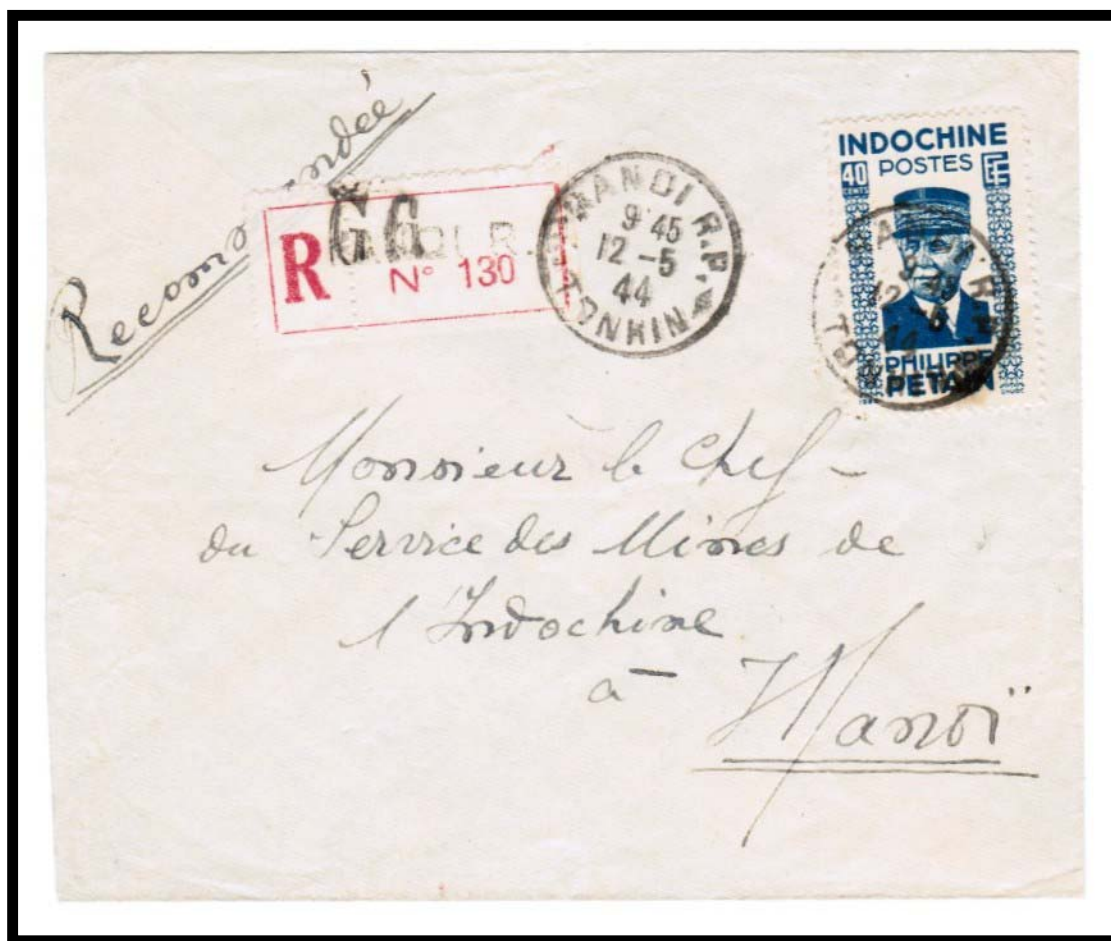 Recommandée
R
G G
HANOI R.P.
N° 130
HANOI R.P.
9 45
12 -5
44
TONKIN
INDOCHINE
POSTES
40
CENTS
EF
PHILIPPE
PETAIN
12 -5
44
Monsieur le Chef
du Service des Mines de
l'Indochine
à
Hanoï